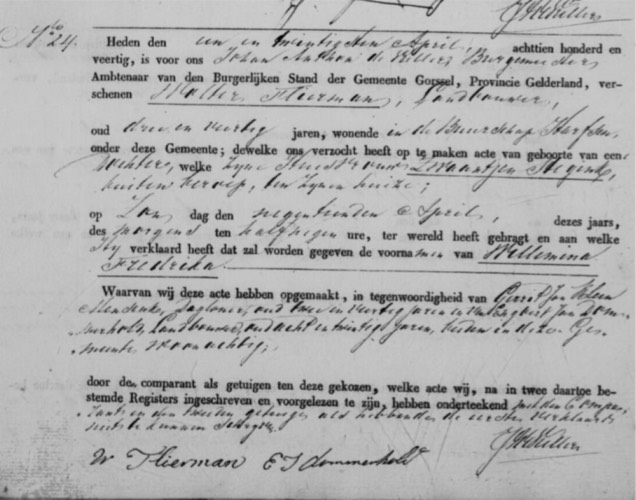 No 24.
Heden den een en twintigsten April, achttien honderd en
veertig, is voor ons Johan Anthon de Villers Burgemeester
Ambtenaar van den Burgerlijken Stand der Gemeente Gorssel, Provincie Gelderland, ver-
schenen Wolter Flierman, Landbouwer,
oud drie en veertig jaren, wonende in de Buurschap Harfsen
onder deze Gemeente; dewelke ons verzocht heeft op te maken acte van geboorte van eene
dochter, welke zijne Huisvrouw Zwaantjen
buiten beroep, ten zijnen huize;
op Zon dag den negentienden April, dezes jaars,
des morgens ten half negen ure, ter wereld heeft gebragt en aan welke
Hij verklaard heeft dat zal worden gegeven de voornamen van Willemina
Fredrika.
Waarvan wij deze acte hebben opgemaakt, in tegenwoordigheid van Gerrit Jan Klein
Daglooner, oud twee en veertig jaren en van Engbert Jan Dom-
merholt, Landbouwer, oud acht en twintig jaren, beiden in deze Ge-
meente woonachtig;
door de comparant als getuigen ten deze gekozen, welke acte wij, na in twee daartoe be-
stemde Registers ingeschreven en voorgelezen te zijn, hebben onderteekend met den Compa-
rant en den tweeden getuige, als hebbende de eerste verklaard
niet te kunnen
W Flierman E J Dommerholt